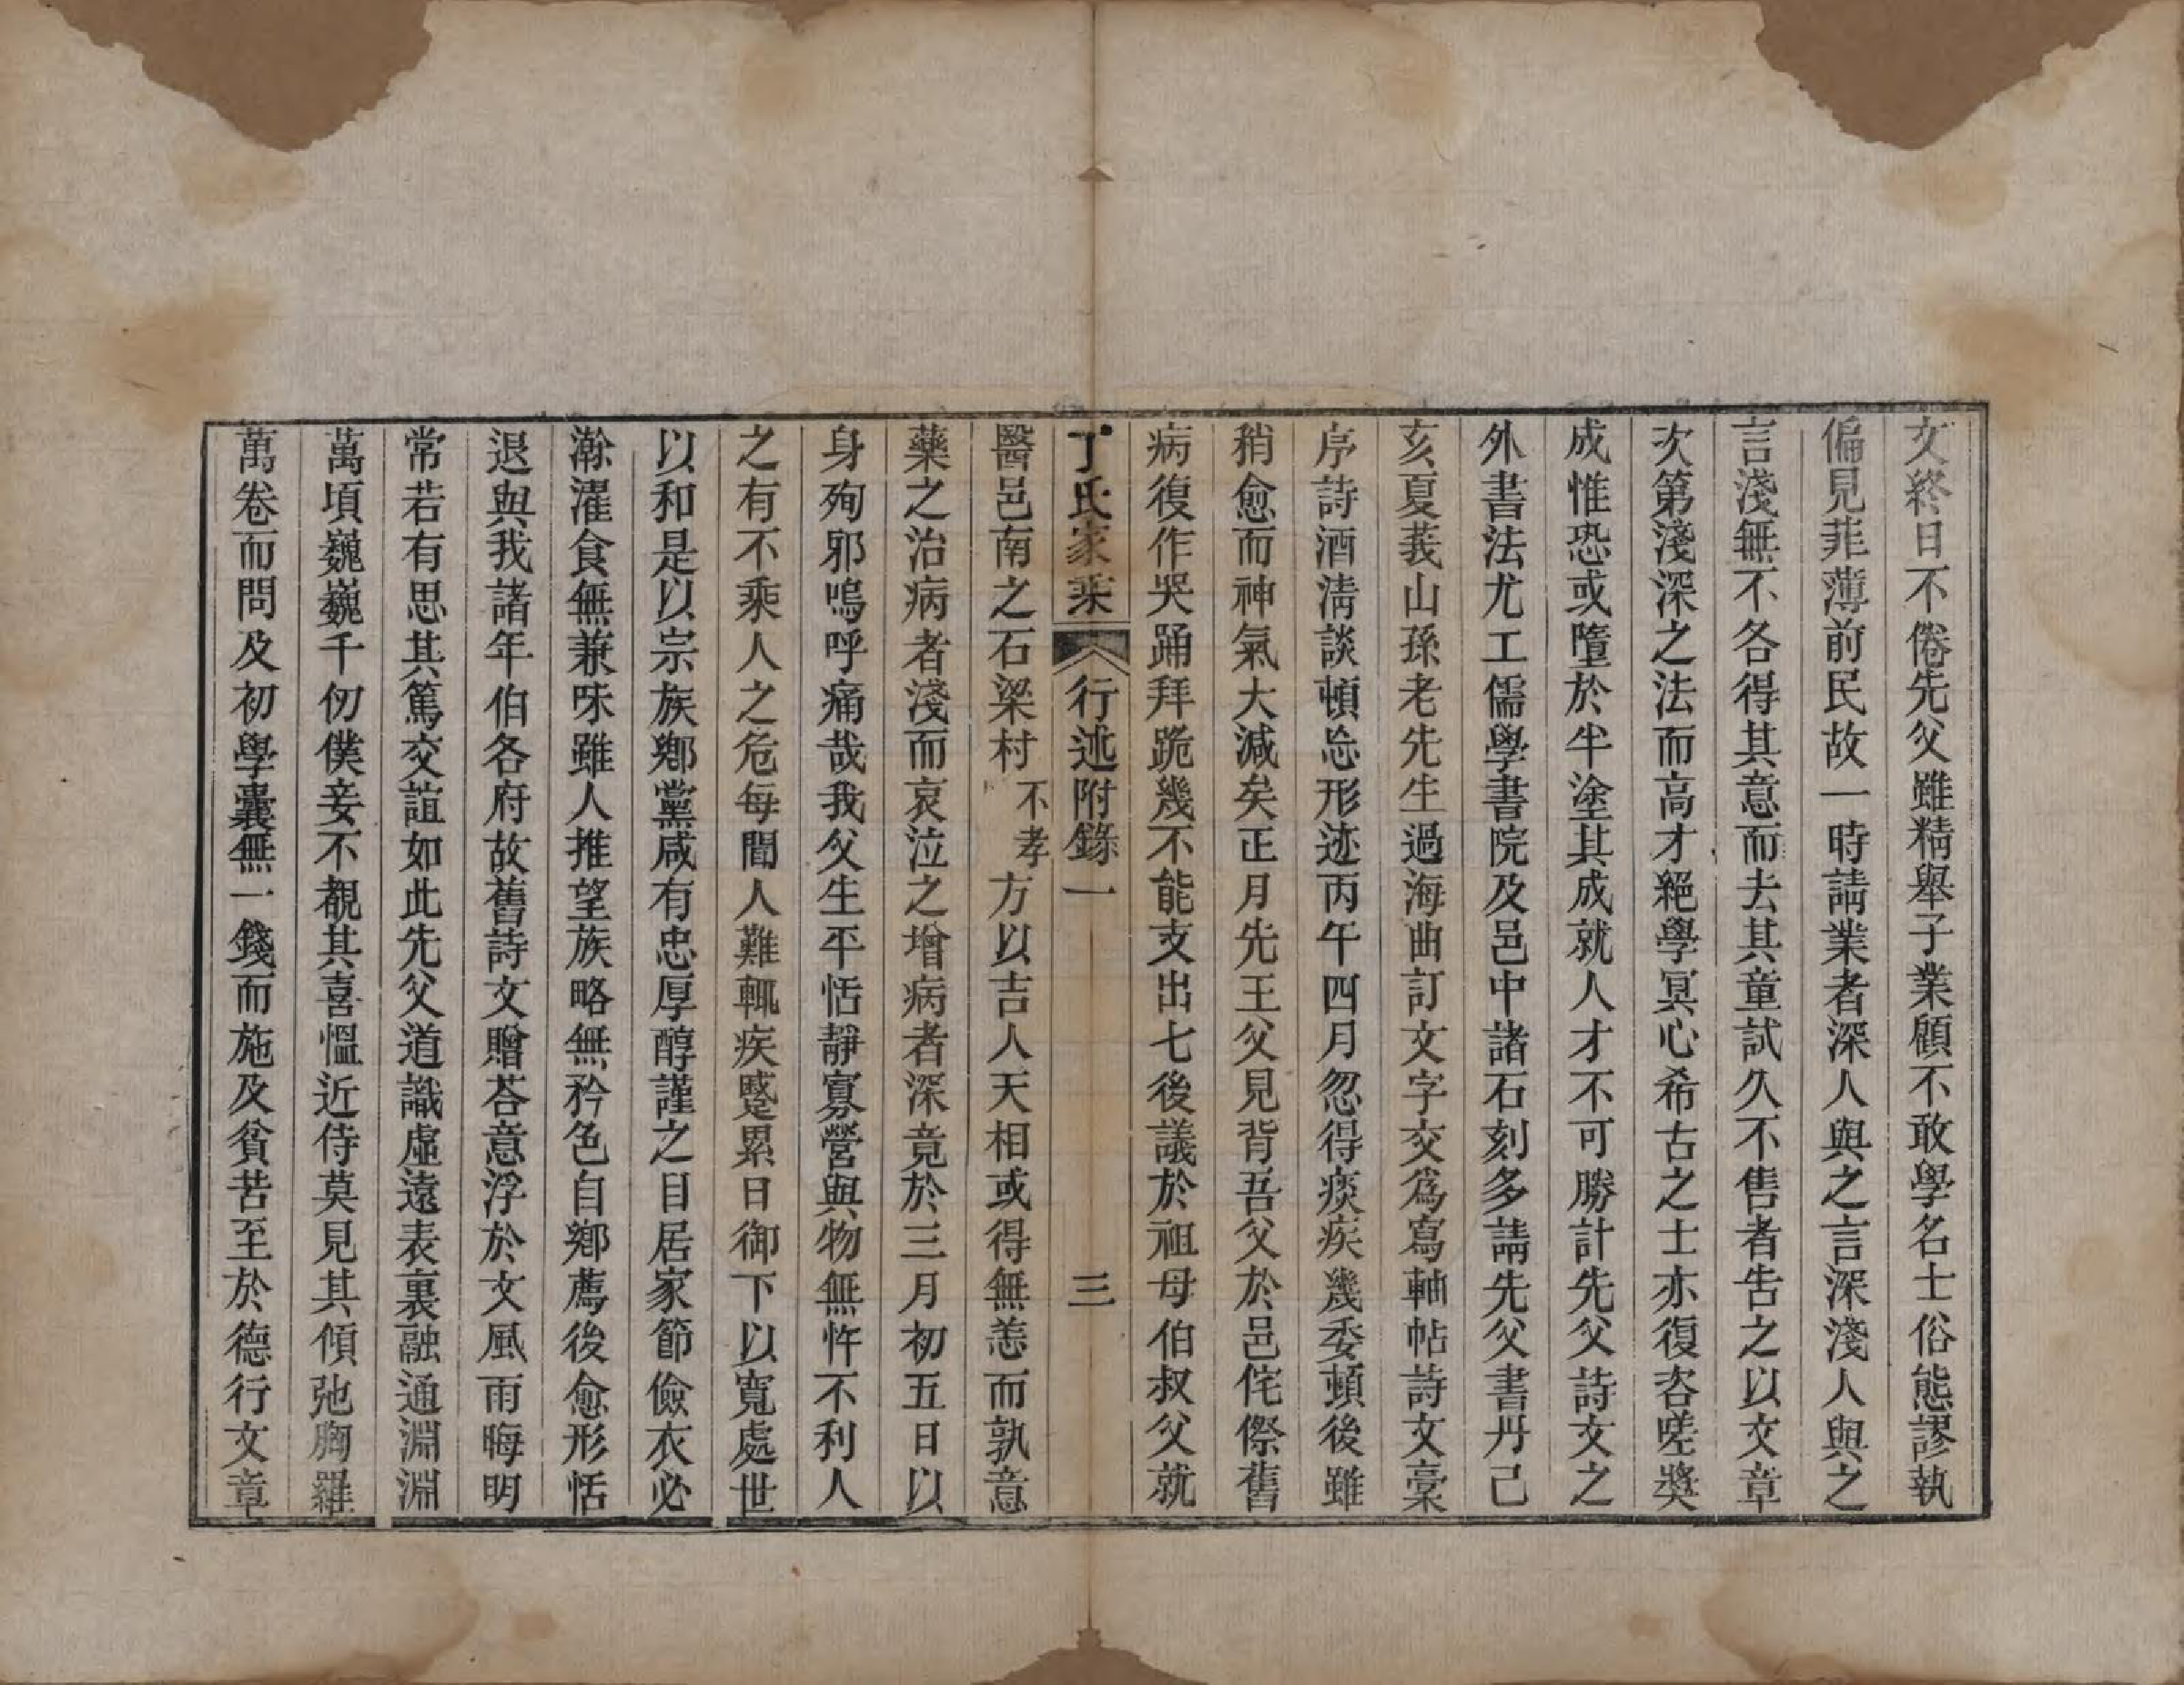 文終日不倦先父雖精舉子業顧不敢學名士俗態謬執
偏見菲薄前民故一時請業者深人與之言深淺人與之
言淺無不各得其意而去其童試久不售者告之以文章
次第淺深之法而高才絕學冥心希古之士亦復咨嗟獎
成惟恐或墮於半塗其成就人才不可勝計先父詩文之
外書法尤工儒學書院及邑中諸石刻多請先父書丹己
亥夏莪山孫老先生過海曲訂文字交爲寫軸帖詩文稾
序詩酒清談頓忘形迹丙午四月忽得痰疾幾委頓後雖
稍愈而神氣大減矣正月先王父見背吾父於邑侘傺舊
病復作哭踊拜跪幾不能支出七後議於祖母伯叔父就
丁氏家乘 行述附錄一 三
醫邑南之石梁村不孝方以吉人天相或得無恙而孰意
藥之治病者淺而哀泣之增病者深竟於三月初五日以
身殉邪嗚呼痛哉我父生平恬靜寡營與物無忤不利人
之有不乘人之危每聞人難輒疾蹙累日御下以寬處世
以和是以宗族鄉黨咸有忠厚醇謹之目居家節儉衣必
澣濯食無兼味雖人推望族略無矜色自鄉薦後愈形恬
退與我諸年伯各府故舊詩文贈荅意浮於文風雨晦明
常若有思其篤交誼如此先父道識虛遠表裏融通淵淵
萬頃巍巍千仞僕妾不覩其喜慍近侍莫見其傾弛胸羅
萬卷而問及初學囊無一錢而施及貧苦至於德行文章